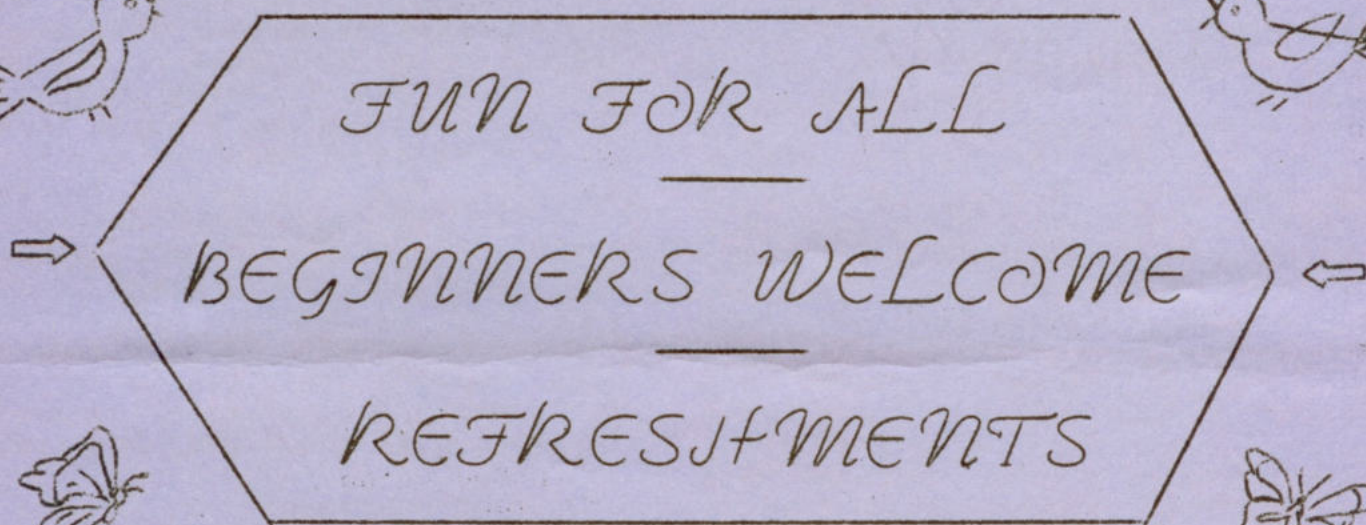 FUN FOR ALL
BEGINNERS WELCOME
REFRESHMENTS